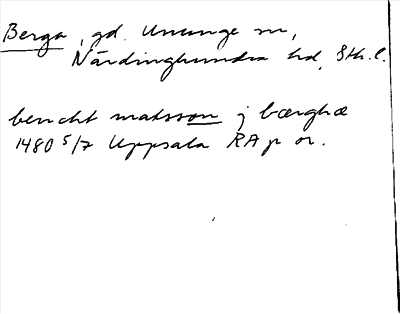 Berga, gd. Ununge sn,
Närdinghundra hd, Sth. l.
bencht matsson j bærghæ
1480 5/7 Uppsala RA p or.